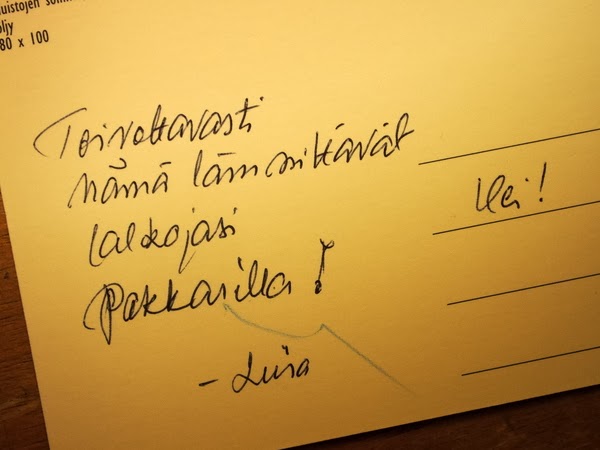 öljy
80 x 100
Toivottavasti
nämä lämmittävät
jalkojasi
Pakkasilla!
- Liisa
Hei!